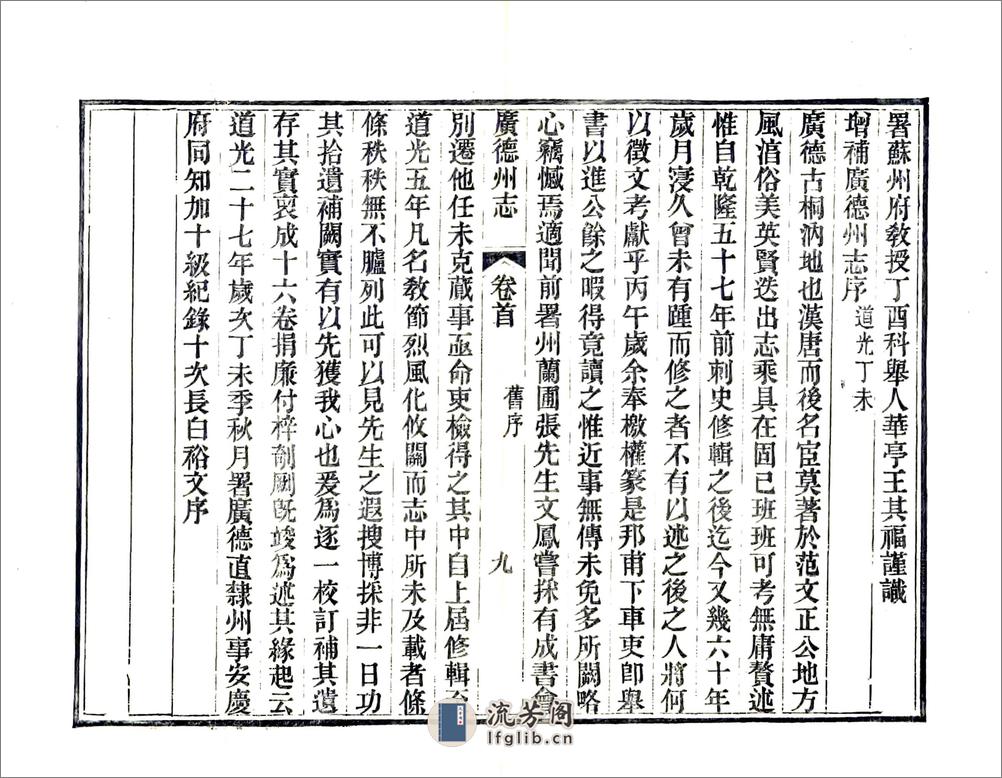 署蘇州府教授丁酉科舉人華亭王其福謹識
增補廣德州志序 道光丁未
廣德古桐汭地也漢唐而後名宦莫著於范文正公地方
風淯俗美英賢迭出志乘具在固已班班可考無庸贅述
惟自乾隆五十七年前刺史修輯之後迄今又幾六十年
歲月寖久曾未有踵而修之者不有以述之後之人將何
以徵文考獻乎丙午歲余奉檄權篆是邦甫下車吏卽舉
書以進公餘之暇得竟讀之惟近事無傳未免多所闕略
心竊憾焉適聞前署州蘭圃張先生文鳳嘗採有成書會
廣德州志 卷首 舊序 九
別遷他任未克蕆事亟命吏檢得之其中自上屆修輯至
道光五年凡名教節烈風化攸關而志中所未及載者條
條秩秩無不臚列此可以見先生之遐搜博採非一日功
其拾遺補闕實有以先獲我心也爰爲逐一校訂補其遺
存其實裒成十六卷捐廉付梓剞劂旣竣爲述其緣起云
道光二十七年歲次丁未季秋月署廣德直隸州事安慶
府同知加十級紀錄十次長白裕文序
流芳阁
lfglib.cn